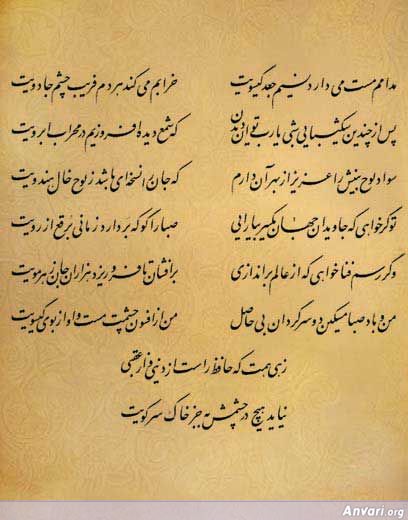 مدامم مست می دارد نسیم جعد گیسویت خرابم می کند هر دم فریب چشم جادویت
پس از چندین شکیبایی شبی یارب توان دیدن که شمع دیده افروزیم در محراب ابرویت
سواد لوح بینش را عزیز از بهر آن دارم که جان را نسخه‌ای باشد ز لوح خال هندویت
تو گر خواهی که جاویدان جهان یکسر بیارایی صبا را گو که بردارد زمانی برقع از رویت
وگر رسم فنا خواهی که از عالم براندازی برافشان تا فرو ریزد هزاران جان ز هر مویت
من و باد صبا مسکین دو سرگردان بی حاصل من از افسون چشمت مست و او از بوی گیسویت
زهی همت که حافظ راست از دنیی و از عقبی
نیاید هیچ در چشمش به جز خاک سر کویت
Anvari.org